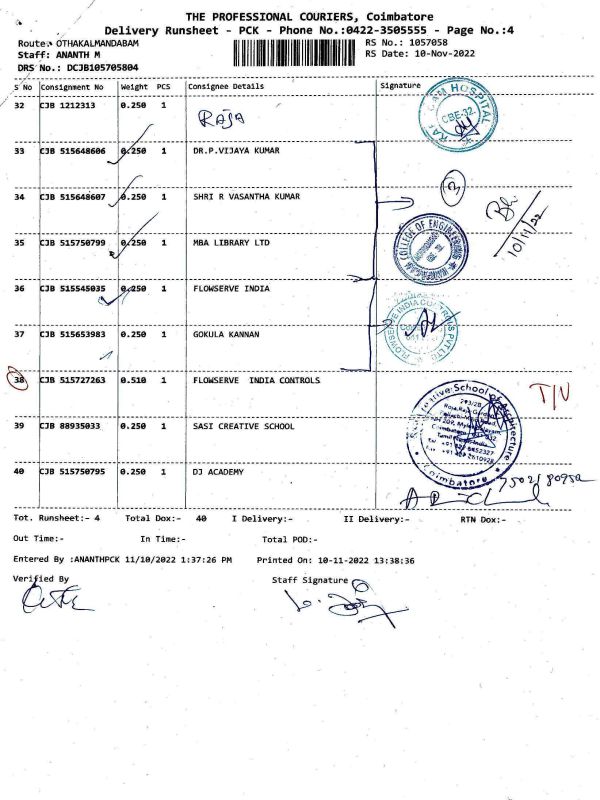 THE PROFESSIONAL COURIERS, Coimbatore
Delivery Runsheet - PCK - Phone No.:0422-3505555 - Page No.:4
Route: OTHAKALMANDABAM
RS No.: 1057058
Staff: ANANTH M
RS Date: 10-Nov-2022
DRS No.: DCJB105705804
S No Consignment No Weight PCS Consignee Details Signature
32 CJB 1212313 0.250 1 RAJA
HOSPITAL
CBE-32
33 CJB 515648606 0.250 1 DR.P.VIJAYA KUMAR
34 CJB 515648607 0.250 1 SHRI R VASANTHA KUMAR
3
10/11/22
35 CJB 515750799 0.250 1 MBA LIBRARY LTD
COLLEGE OF ENGINEERING
36 CJB 515545035 0.250 1 FLOWSERVE INDIA
37 CJB 515653983 0.250 1 GOKULA KANNAN
FLOWSERVE INDIA CONTROLS PVT LTD
38 CJB 515727263 0.510 1 FLOWSERVE INDIA CONTROLS
T/N
39 CJB 88935033 0.250 1 SASI CREATIVE SCHOOL
Creative School of Architecture
Coimbatore
40 CJB 515750795 0.250 1 DJ ACADEMY
Tot. Runsheet:- 4 Total Dox:- 40 I Delivery:- II Delivery:- RTN Dox:-
Out Time:- In Time:- Total POD:-
Entered By :ANANTHPCK 11/10/2022 1:37:26 PM Printed On: 10-11-2022 13:38:36
Verified By Staff Signature